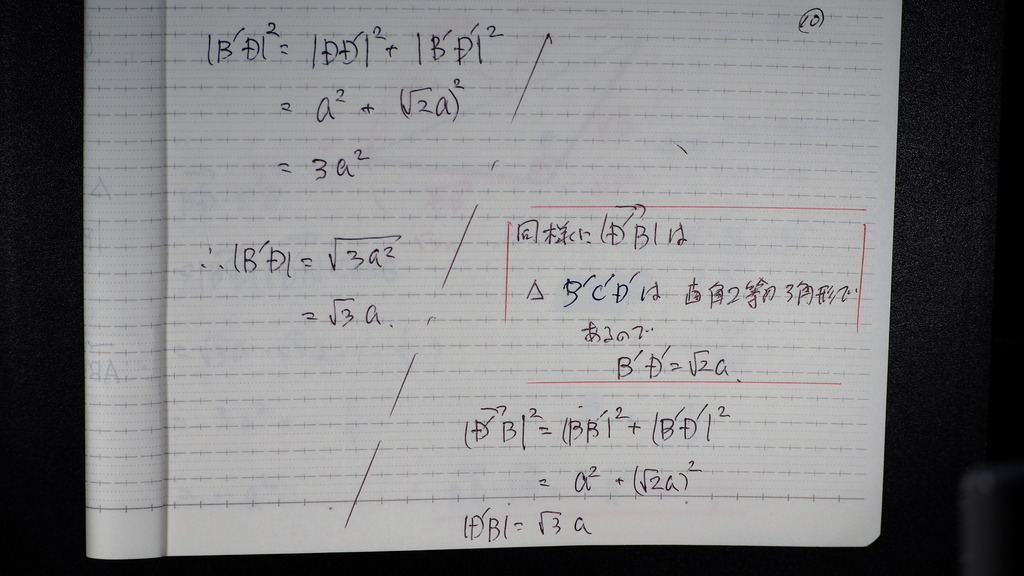 ⑩
|B'D|² = |DD'|² + |B'D'|²
= a² + (√2a)²
= 3a²
∴ |B'D| = √3a²
= √3 a.
同様に |D'B| は
△ B'C'D' は 直角2等辺3角形で
あるので
B'D' = √2a.
|D'B|² = |BB'|² + |B'D'|²
= a² + (√2a)²
|D'B| = √3 a